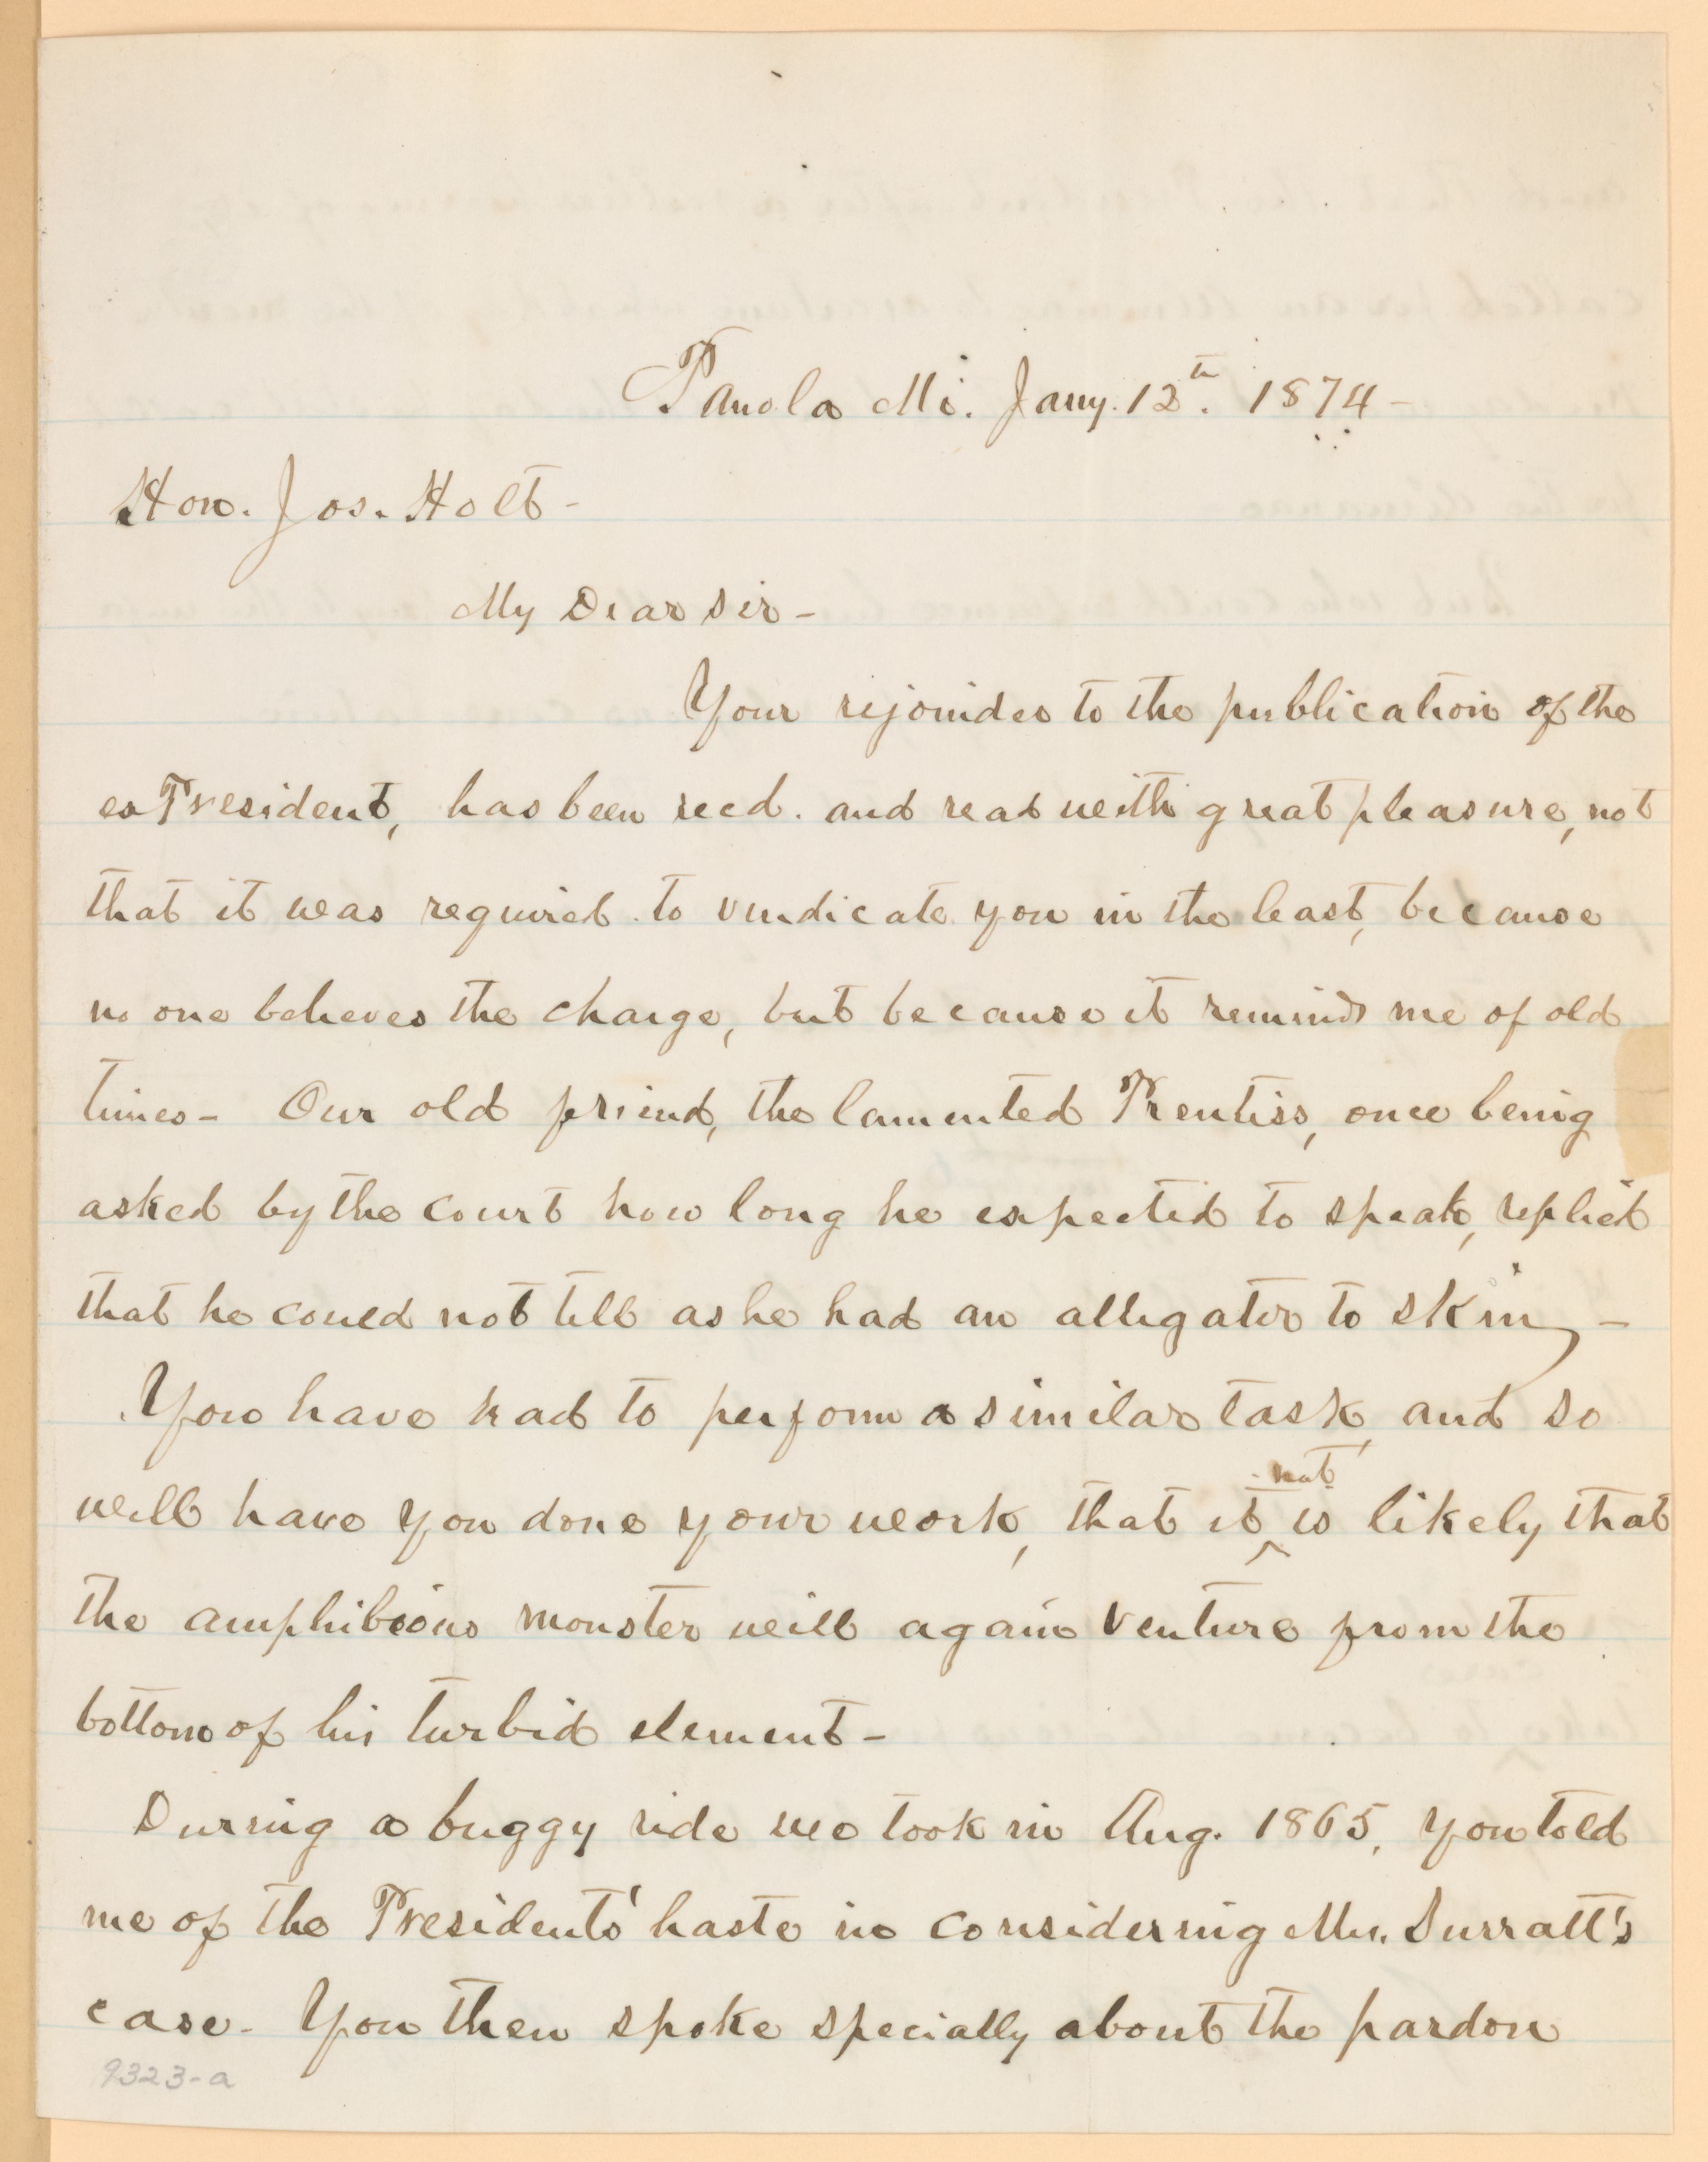 Panola Mi. Jany. 12th. 1874-
Hon. Jos. Holt-
My Dear Sir-
Your rejoinder to the publication of the
ex President, has been recd. and read with great pleasure, not
that it was required to vindicate you in the least, because
no one believes the charge, but because it reminds me of old
times- Our old friend, the lamented Prentiss, once being
asked by the court how long he expected to speak, replied
that he could not tell as he had an alligator to skin,-
You have had to perform a similar task, and so
well have you done your work, that it not is likely that
the amphibious monster will again venture from the
bottom of his turbid element-
During a buggy ride we took in Aug. 1865, you told
me of the Presidents' haste in considering Mrs. Surratt's
case- You then spoke specially about the pardon
9323-a